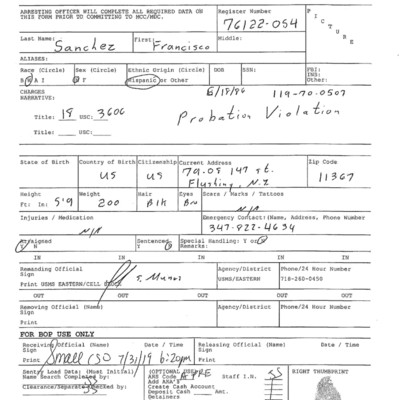 ARRESTING OFFICER WILL COMPLETE ALL REQUIRED DATA ON Register Number
THIS FORM PRIOR TO COMMITTING TO MCC/MDC. 76122-054
PICTURE
Last Name: Sanchez First: Francisco Middle:
ALIASES:
Race (Circle) Sex (Circle) Ethnic Origin (Circle) DOB SSN: FBI:
B A I F Hispanic or Other INS:
Other:
CHARGES
NARRATIVE:
Title: 18 USC: 3606 Probation Violation
Title: USC:
State of Birth Country of Birth Citizenship Current Address Zip Code
US US 147 st. 11367
Flushing, N.Y
Height Weight Hair Eyes Scars / Marks / Tattoos
Ft: In: 5'9 200 Blk Br N/A
Injuries / Medication Emergency Contact (Name, Address, Phone Number
N/A 347-822-4634
Arraigned Sentenced Special Handling: Y or
Remarks:
IN IN IN IN IN
Remanding Official Agency/District Phone/24 Hour Number
Sign USMS/EASTERN 718-260-0450
Print USMS EASTERN/CELL BLOCK
OUT OUT OUT OUT OUT
Removing Official (Name) Agency/District Phone/24 Hour Number
Sign
Print
FOR BOP USE ONLY
Receiving Official (Name) Date / Time Releasing Official (Name) Date / Time
Sign Sign
Print Small CSO 7/31/19 6:20pm Print
Sentry Load Data: (Must Initial) (OPTIONAL USE) Staff I.N. SS RIGHT THUMBPRINT
Name Search Completed by: ARS Code
Clearance/Separatee Checked by: SS Add ARA's
Create Cash Account
Deposit Cash Amt.
Detainers